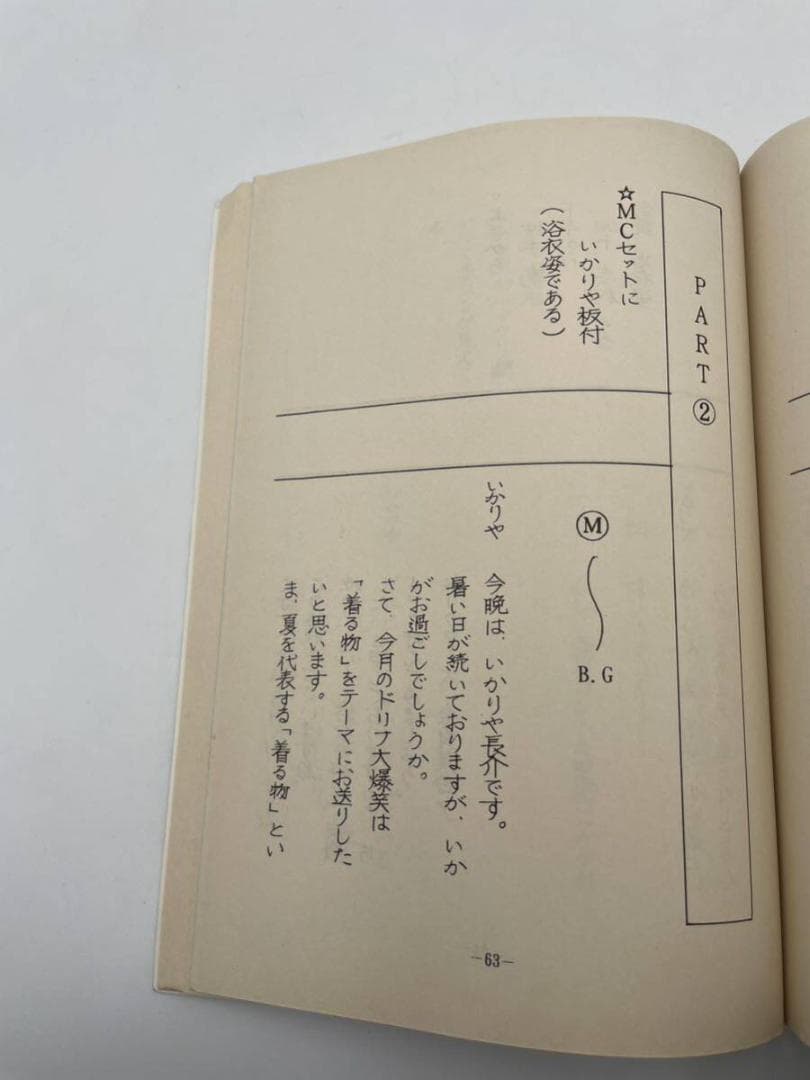 PART②
☆MCセットに
いかりや板付
(浴衣姿である)
Ⓜ
B.G
いかりや 今晩は、いかりや長介です。
暑い日が続いておりますが、いか
がお過ごしでしょうか。
さて、今月のドリフ大爆笑は
「着る物」をテーマにお送りした
いと思います。
ま、夏を代表する「着る物」とい
-63-